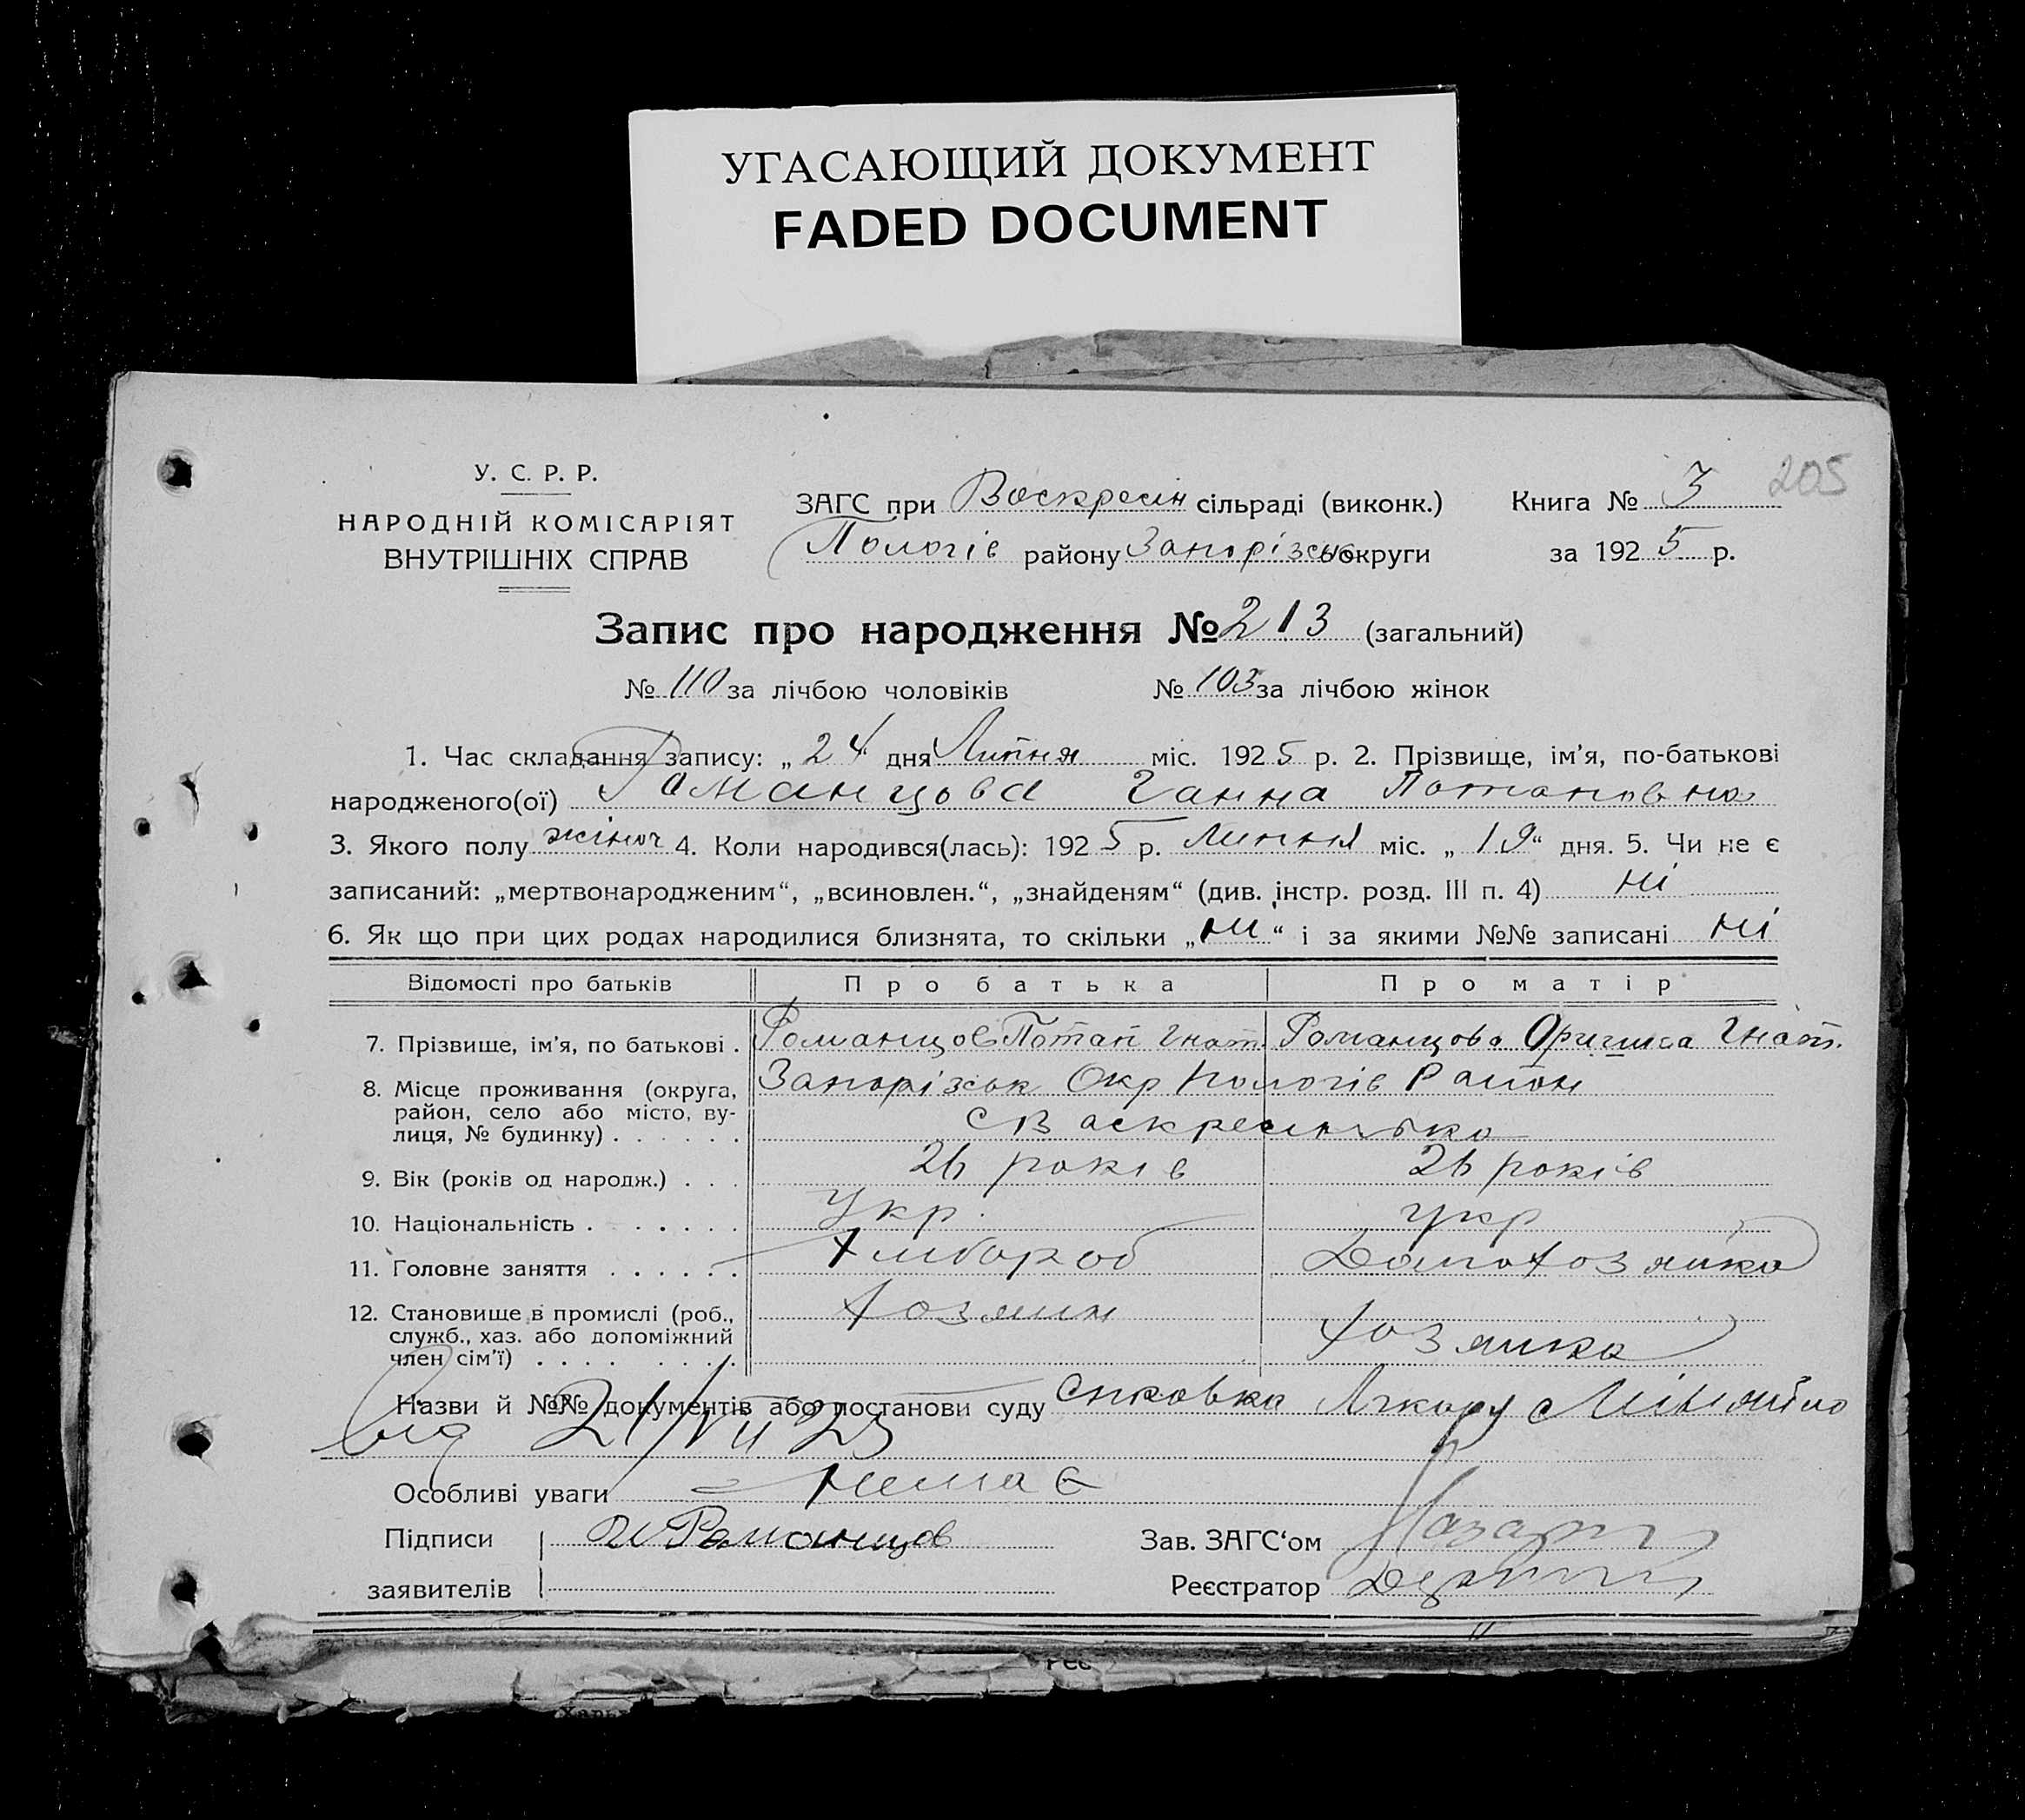 УГАСАЮЩИЙ ДОКУМЕНТ
FADED DOCUMENT
205
У. С. Р. Р.
НАРОДНІЙ КОМІСАРІЯТ
ВНУТРІШНІХ СПРАВ
ЗАГС при Воскресін сільраді (виконк.) Книга № 3
Пологів району Запорізьк округи за 1925 р.
Запис про народження № 213 (загальний)
№ 110 за лічбою чоловіків № 103 за лічбою жінок
1. Час складання запису: „24" дня Липня міс. 1925 р. 2. Прізвище, ім'я, по-батькові
народженого(ої) Романцова Ганна Потаповна
3. Якого полу жіноч 4. Коли народився(лась): 1925 р. Липня міс. „19" дня. 5. Чи не є
записаний: „мертвонародженим", „всиновлен.", „знайденям" (див. інстр. розд. III п. 4) ні
6. Як що при цих родах народилися близнята, то скільки „ни" і за якими №№ записані ні
Відомості про батьків Про батька Про матір
7. Прізвище, ім'я, по батькові . Романцов Потап Гнат. Романцова Оришка Гнат.
8. Місце проживання (округа, Запорізьк Окр Пологів Район
район, село або місто, ву-
лиця, № будинку) . . . . . . с Васкресинька
9. Вік (років од народж.) . . . 26 років 26 років
10. Національність . . . . . . Укр. Укр
11. Головне заняття . . . . . . Хлібороб Домохозяйка
12. Становище в промислі (роб., Хозяин
служб., хаз. або допоміжний Хозяйка
член сім'ї) . . . . . . . .
Назви й №№ документів або постанови суду
від 21/VII 25
Особливі уваги немає
Підписи Романцов Зав. ЗАГС'ом
заявителів Реєстратор